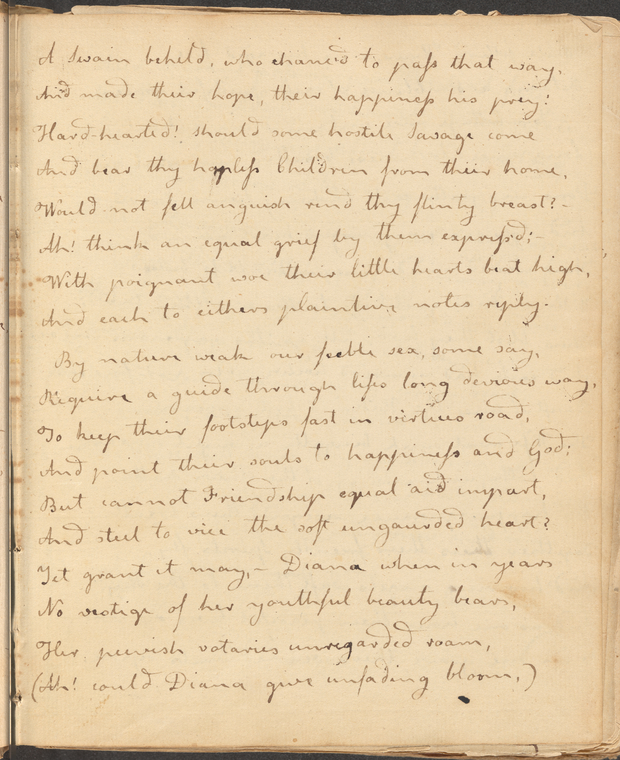 A Swain beheld, who chanc'd to pass that way,
And made their hope, their happiness his prey!
Hard-hearted! should some hostile Savage come
And bear thy hapless Children from their home,
Would not fell anguish rend thy flinty breast?-
Ah! think an equal grief by them express'd;-
With poignant woe their little hearts beat high,
And each to eithers plaintive notes reply.
By nature weak our feeble sex, some say,
Require a guide through lifes long devious way,
To keep their footsteps fast in virtues road,
And point their souls to happiness and God:
But cannot Friendship equal aid impart,
And steel to vice the soft ungaurded heart?
Yet grant it may,- Diana when in years
No vestige of her youthful beauty bears,
Her peevish votaries unregarded roam,
(Ah! could Diana give unfading bloom,)